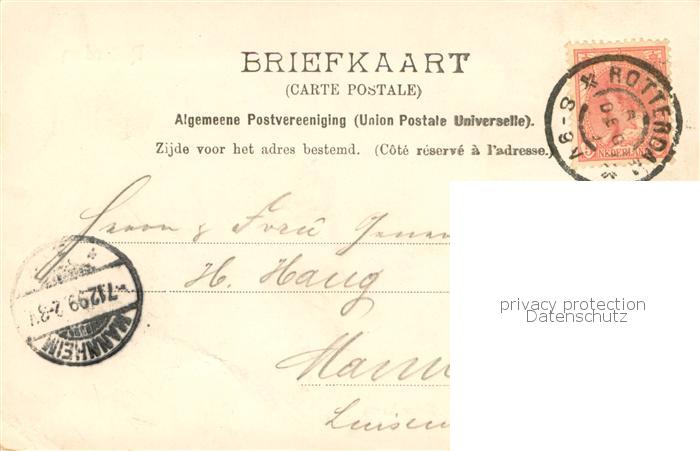 BRIEFKAART
(CARTE POSTALE)
Algemeene Postvereeniging (Union Postale Universelle).
Zijde voor het adres bestemd. (Côté réservé à l'adresse.)
ROTTERDAM
DEC
8-9V
NEDERLAND
Herrn & Frau
H. Haug
Mann
Luisen
MANNHEIM
7.12.99. 2-3
privacy protection
Datenschutz